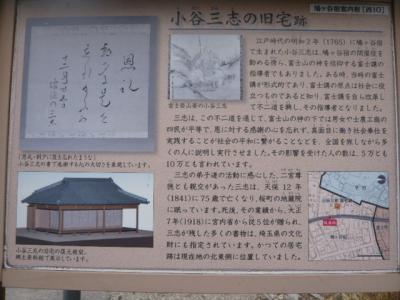 鳩ヶ谷宿案内板 [西10]
小谷三志の旧宅跡
江戸時代の明和2年(1765)に鳩ヶ谷宿
で生まれた小谷三志は、鳩ヶ谷宿の問屋役を
勤める傍ら、富士山の神を信仰する富士講の
指導者でもありました。ある時、当時の富士
講が形式的であり、富士講の原点は社会に役
立つものであると知り、富士講を自ら改革し
て不二道を興し、その指導者となりました。
三志は、この不二道を通じて、富士山の神の下では男女や士農工商の
四民が平等で、恩に対する感謝の心を忘れず、真面目に働き社会奉仕を
実践することが社会の平和に繋がることなどを、全国を旅しながら多
くの人に説明し実行させました。その影響を受けた人の数は、5万とも
10万とも言われています。
三志の弟子達の活動に感心した、二宮尊
徳とも親交があった三志は、天保12年
(1841)に75歳で亡くなり、桜町の地蔵院
に眠っています。死後、その業績から、大正
7年(1918)に宮内省から従5位が贈られ、
三志が残した多くの書物は、埼玉県の文化
財にも指定されています。かつての居宅
跡は現在地の北東側に位置していました。
富士登山姿の小谷三志
恩礼
「恩礼・刹テに我を忘れたまふな」
小谷三志の書で感謝する人の大切さを表現しています。
小谷三志の旧宅の復元模型。
郷土資料館で展示しています。